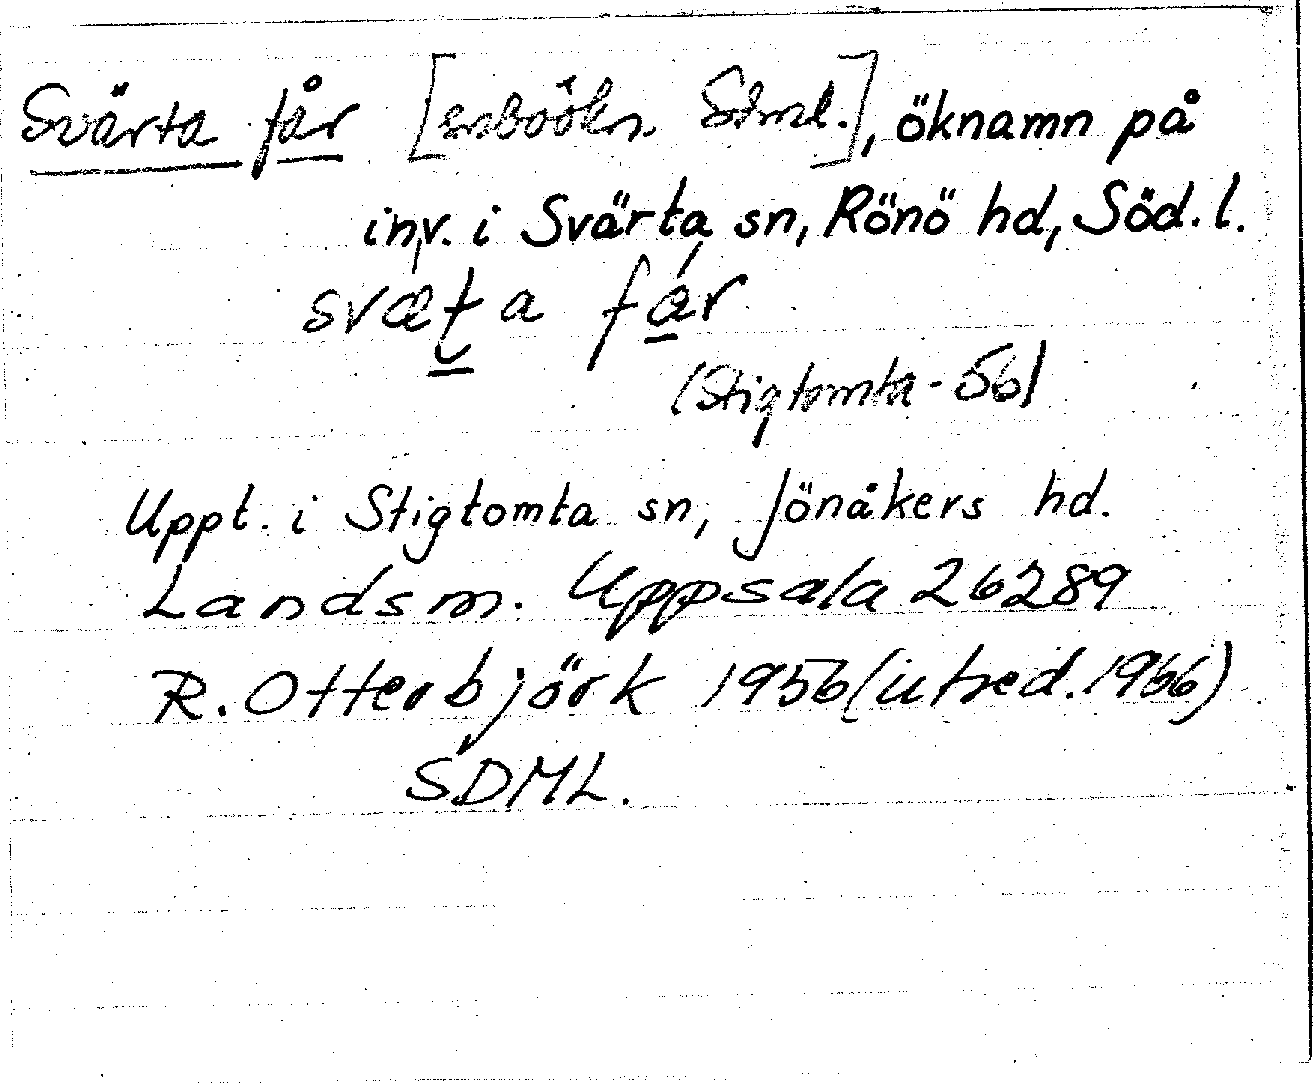 Svärta får [snboökn. Sdml.], öknamn på
inv. i Svärta sn, Rönö hd, Söd. l.
(Stigtomta - 56)
Uppt. i Stigtomta sn, Jönåkers hd.
Landsm. Uppsala 26289
R. Otterbjörk 1956 (utred. 1966)
SDML.